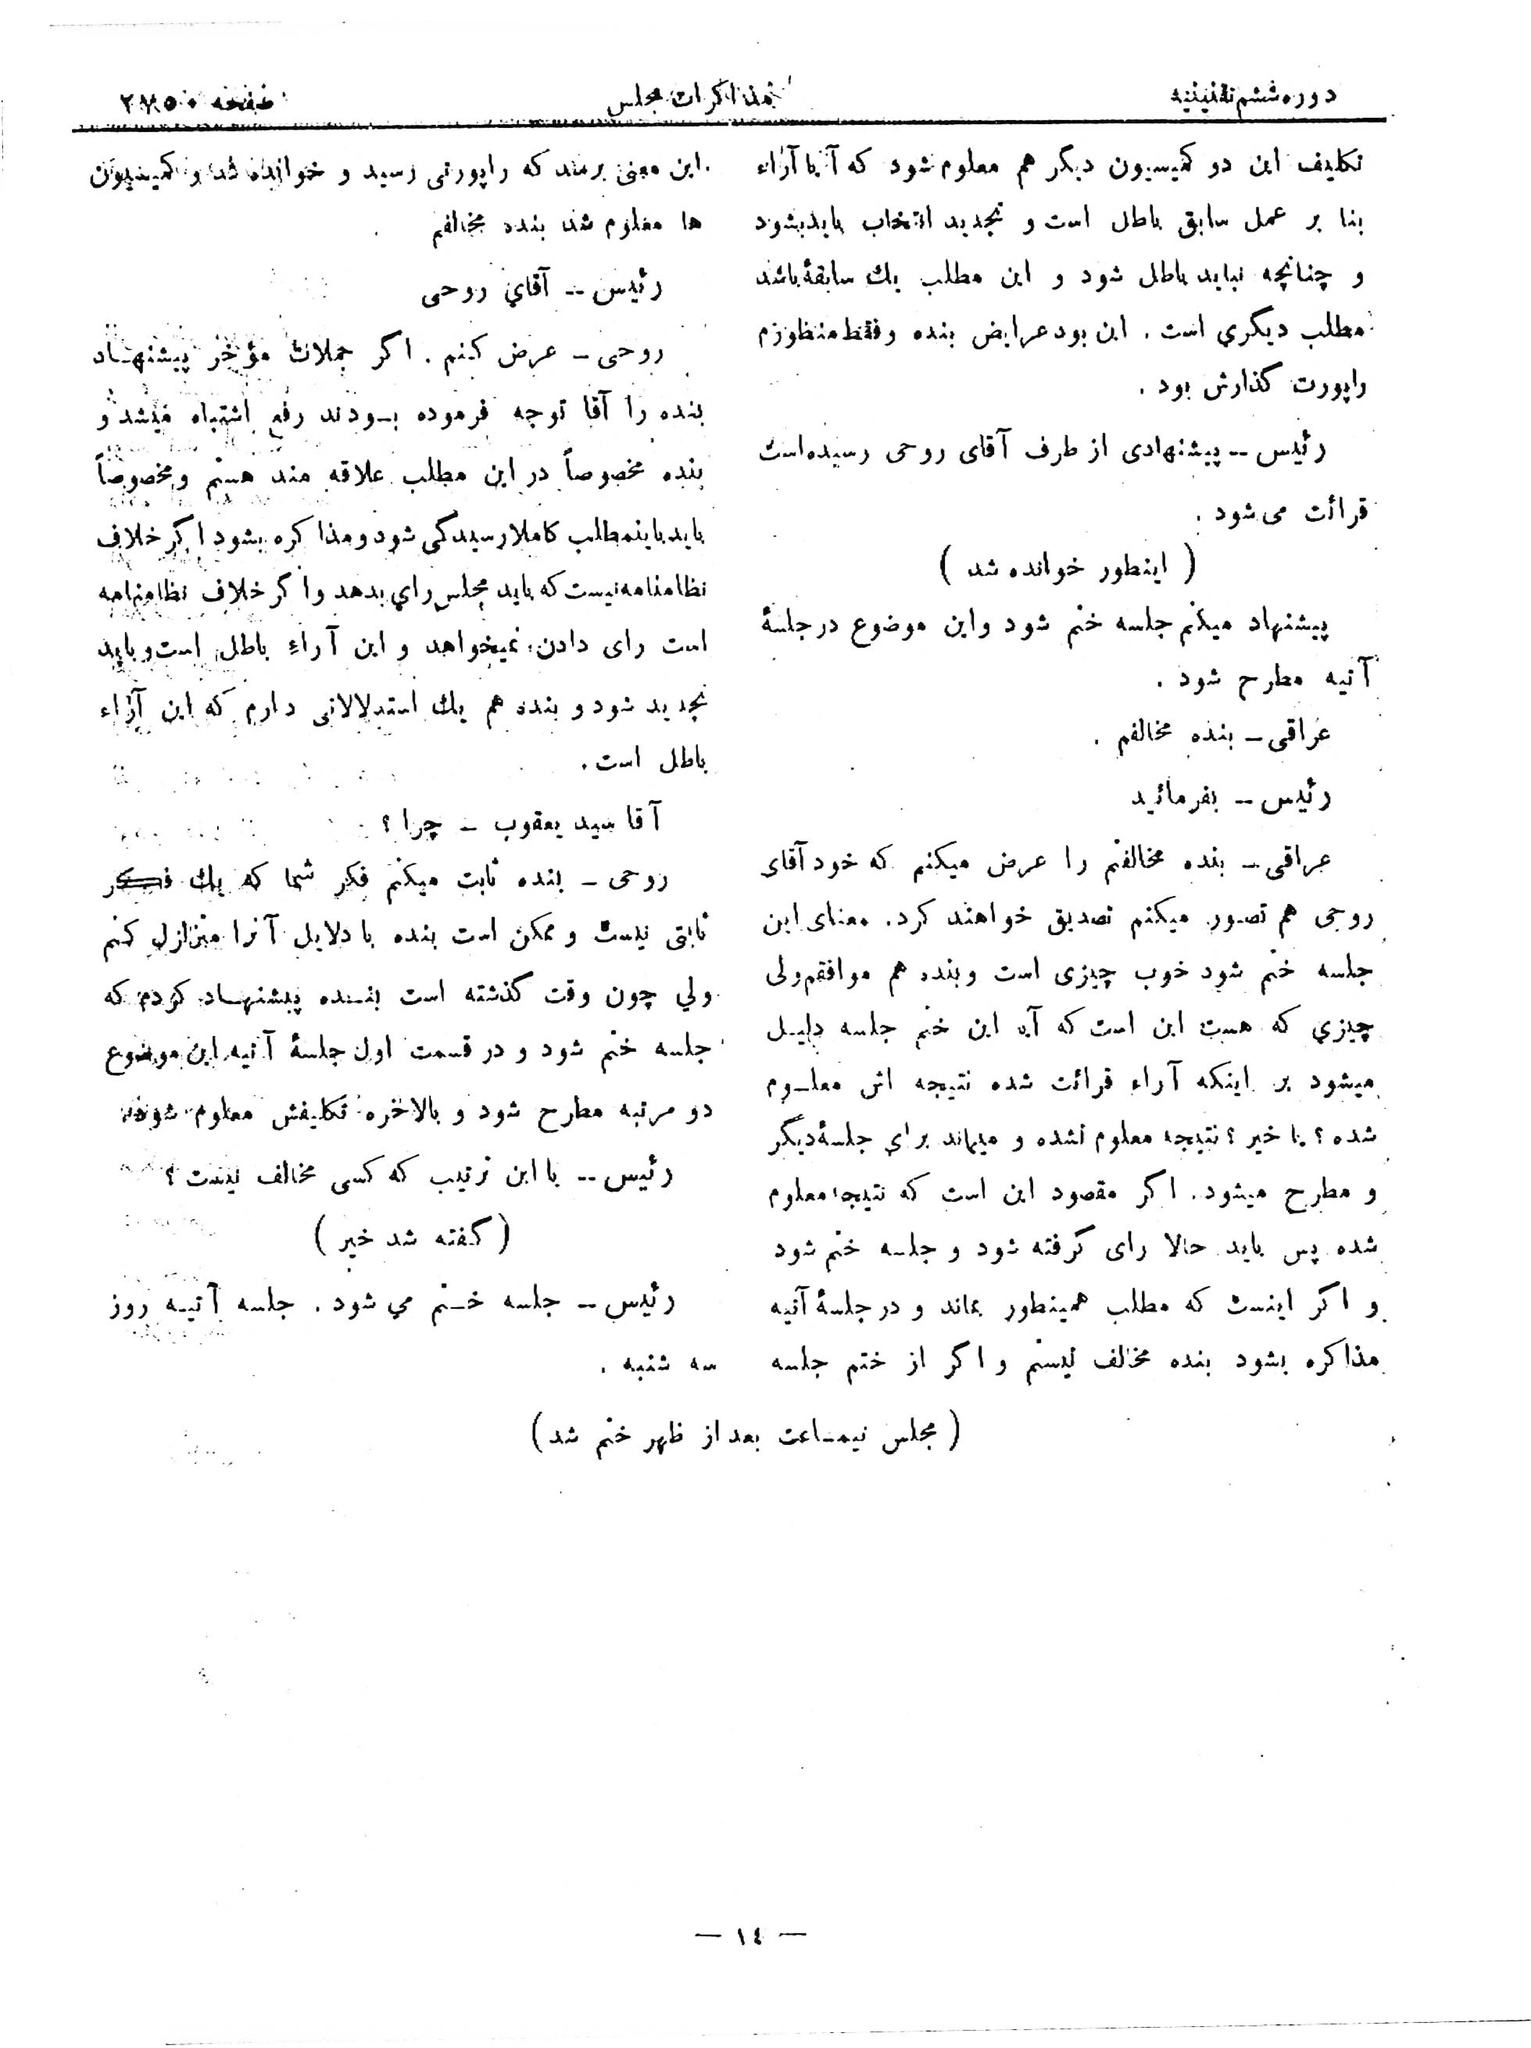 دوره ششم تقنینیه
مذاکرات مجلس
صفحه
تکلیف این دو کمیسیون دیگر هم معلوم شود که آیا آراء
بنا بر عمل سابق باطل است و تجدید انتخاب باید بشود
و چنانچه نباید باطل شود و این مطلب یك سابقهٔ باشد
مطلب دیگري است . این بود عرایض بنده و فقط منظورم
راپورت گذارش بود .
رئیس -- پیشنهادی از طرف آقای روحی رسیده است
قرائت می شود .
( اینطور خوانده شد )
پیشنهاد میکنم جلسه ختم شود و این موضوع در جلسهٔ
آتیه مطرح شود .
عراقی - بنده مخالفم .
رئیس -- بفرمائید
عراقی - بنده مخالفتم را عرض میکنم که خود آقای
روحی هم تصور میکنم تصدیق خواهند کرد. معنای این
جلسه ختم شود خوب چیزی است و بنده هم موافقم ولی
چیزي که هست این است که آیا این ختم جلسه دلیـل
میشود بر اینکه آراء قرائت شده نتیجه اش معلـوم
شده ؟ یا خیر ؟ نتیجه معلوم نشده و میماند برای جلسهٔ دیگر
و مطرح میشود. اگر مقصود این است که نتیجه معلوم
شده پس باید حالا رای گرفته شود و جلسه ختم شود
و اگر اینست که مطلب همینطور بماند و در جلسهٔ آتیه
مذاکره بشود بنده مخالف نیستم و اگر از ختم جلسه
این معنی برمند که راپورتی رسید و خوانده شد و کمیسیون
ها معلوم شد بنده مخالفم
رئیس -- آقاي روحی
روحی - عرض کنم . اگر جملات مؤخر پیشنهـاد
بنده را آقا توجه فرموده بـودند رفع اشتباه میشد و
بنده مخصوصاً در این مطلب علاقه مند هستم و مخصوصاً
باید باینمطلب کاملا رسیدگی شود و مذاکره بشود اگر خلاف
نظامنامه نیست که باید مجلس راي بدهد و اگر خلاف نظامنامه
است رای دادن نمیخواهد و این آراء باطل است و باید
تجدید شود و بنده هم یك استدلالاتی دارم که این آراء
باطل است .
آقا سید یعقوب - چرا ؟
روحی - بنده ثابت میکنم فکر شما که یك فکر
ثابتی نیست و ممکن است بنده با دلایل آنرا متزلزل کنم
ولي چون وقت گذشته است بنـده پیشنهـاد کردم که
جلسه ختم شود و در قسمت اول جلسهٔ آتیه این موضوع
دو مرتبه مطرح شود و بالاخره تکلیفش معلوم شود
رئیس -- با این ترتیب که کسی مخالف نیست ؟
( گفته شد خیر )
رئیس -- جلسه ختم مي شود . جلسه آتیـه روز
سه شنبه .
( مجلس نیمساعت بعد از ظهر ختم شد )
— ١٤ —